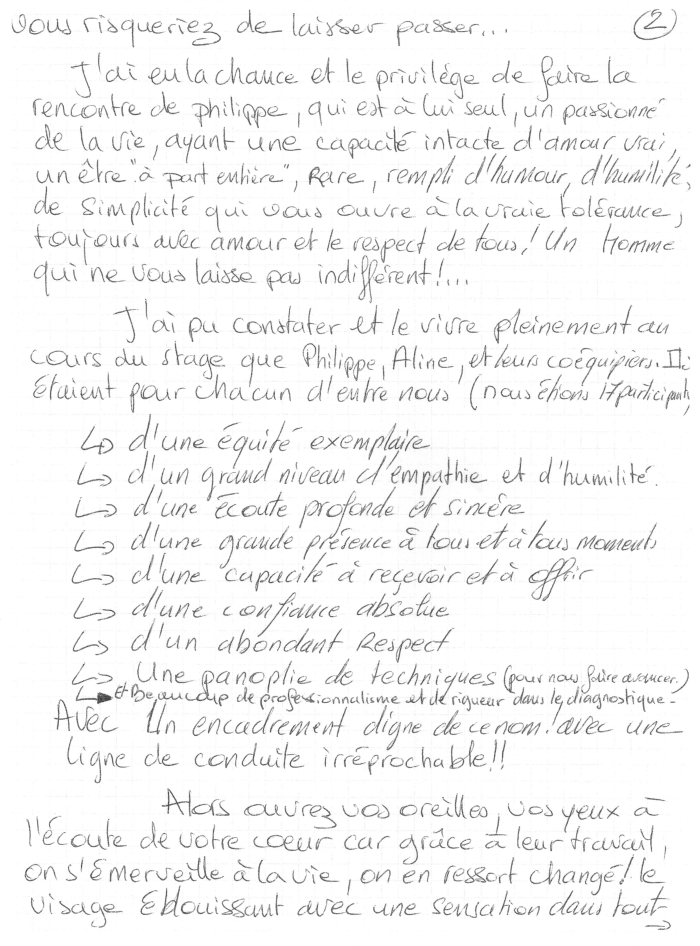 vous risqueriez de laisser passer... (2)
J'ai eu la chance et le privilége de faire la
rencontre de philippe, qui est à lui seul, un passionné
de la vie, ayant une capacité intacte d'amour vrai,
un être "à part entière", Rare, rempli d'humour, d'humilité,
de simplicité qui vous ouvre à la vraie tolérance,
toujours avec amour et le respect de tous! Un Homme
qui ne vous laisse pas indifférent!...
J'ai pu constater et le vivre pleinement au
cours du stage que Philippe, Aline, et leurs coéquipiers. Ils
étaient pour chacun d'entre nous (nous étions 17 participants
↳ d'une équité exemplaire
↳ d'un grand niveau d'empathie et d'humilité.
↳ d'une écoute profonde et sincére
↳ d'une grande présence à tous et à tous moments
↳ d'une capacité à reçevoir et à offrir
↳ d'une confiance absolue
↳ d'un abondant Respect
↳ Une panoplie de techniques (pour nous faire avancer.)
↳ Et Beaucoup de professionnalisme et de rigueur dans le diagnostique.
Avec Un encadrement digne de ce nom! avec une
ligne de conduite irréprochable!!
Alors ouvrez vos oreilles, vos yeux à
l'écoute de votre coeur car grâce à leur travail,
on s'émerveille à la vie, on en ressort changé! le
visage éblouissant avec une sensation dans tout
→